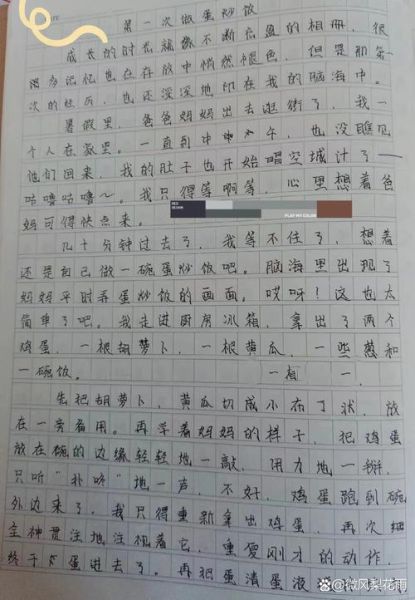 第一次做蛋炒饭
成长的时光就像不断充盈的相册，很
多记忆也在存放中悄然褪色，但是那第一
次的经历，也还深深地印在我的脑海中。
暑假里，爸爸妈妈出去逛街了，我一
个人在家里。一直到中午，也没瞧见
他们回来，我的肚子也开始唱空城计了——
咕噜咕噜～。我只得等啊等，心里想着爸
妈可得快点来。
几十分钟过去了，我等不住了，想着
还是自己做一碗蛋炒饭吧。脑海里出现了
妈妈平时弄蛋炒饭的画面。哎呀！这也太
简单了吧。我走进厨房冰箱，拿出了两个
鸡蛋，一根胡萝卜，一根黄瓜，一些葱和
一碗饭。
先把胡萝卜，黄瓜切成小布丁状，放
在一旁备用。再学着妈妈的样子，把鸡蛋
放在碗的边缘轻轻地一敲，用力地一掰，
只听“扑哧”地一声，不好，鸡蛋跑到碗
外边来了。我只得重新拿出鸡蛋，再次细
全神贯注地注视着它，重复刚才的动作，
终于蛋进去了。再把蛋清蛋液
百家号/微风梨花雨